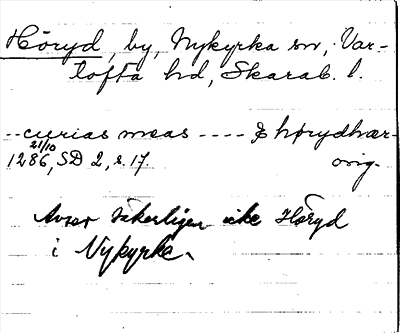 Höryd, by, Nykyrka sn, Var-
tofta hd, Skarab. l.
-- curias meas ---- & hørydhær-
orig.
21/10
1286, SD 2, s. 17.
Avser säkerligen icke Höryd
i Nykyrka.